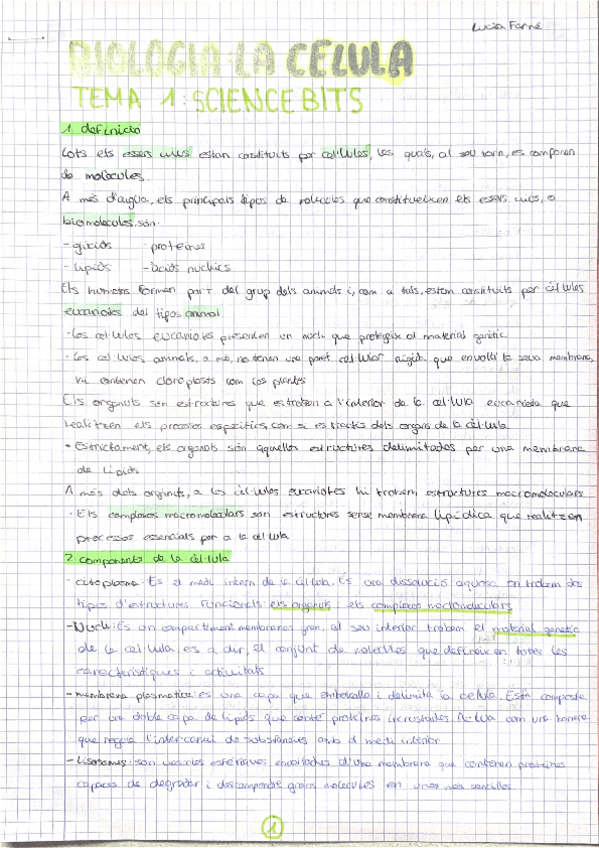 Lucia Farré
BIOLOGIA: LA CÈLULA
TEMA 1: SCIENCE BITS
1. definició
tots els essers vius estan constituits per cèl·lules, les quals, al seu torn, es componen
de molècules.
A més d'aigua, els principals tipos de molècules que constitueixen els essers vius, o
biomolecules, són:
- glúcids - proteïnes
- lípids - àcids nucleics
Els humans formen part del grup dels animals i, com a tals, estem constituits per cèl·lules
eucariotes del tipos animal
- Les cèl·lules eucariotes presenten un nucli que protegeix al material genètic
- Les cèl·lules animals, a més, no tenen una paret cel·lular rigida que envolti la seva membrana,
ni contenen cloroplasts com les plantes
Els orgànuls són estructures que es troben a l'interior de la cèl·lula eucariota que
realitzen els processos específics, com si es tractés dels organs de la cèl·lula
• Estrictament, els organuls són aquelles estructures delimitades per una membrana
de lípids
A més dels orgànuls, a les cèl·lules eucariotes hi trobem estructures macromoleculars
• Els complexos macromoleculars són estructures sense membrana lipídica que realitzen
processos essencials per a la cèl·lula
2. components de la cèl·lula
- citoplasma: És el medi intern de la cèl·lula. És una dissolució aquosa on trobem dos
tipos d'estructures funcionals: els organuls i els complexos macromoleculars
- Nucli: És un compartiment membranós gran, al seu interior trobem el material genètic
de la cèl·lula, és a dir, el conjunt de molècules que defineixen totes les
característiques i activitats
- membrana plasmàtica: és una capa que embolcalla i delimita la cèl·lula. Està composta
per una doble capa de lípids que conté proteïnes incrustades. Actua com una barrera
que regula l'intercanvi de substàncies amb el medi exterior
- Lisosomes: són vesícules esfèriques envoltades d'una membrana que contenen proteïnes
capaces de degradar i descompondre grans molècules en unes més senzilles
1